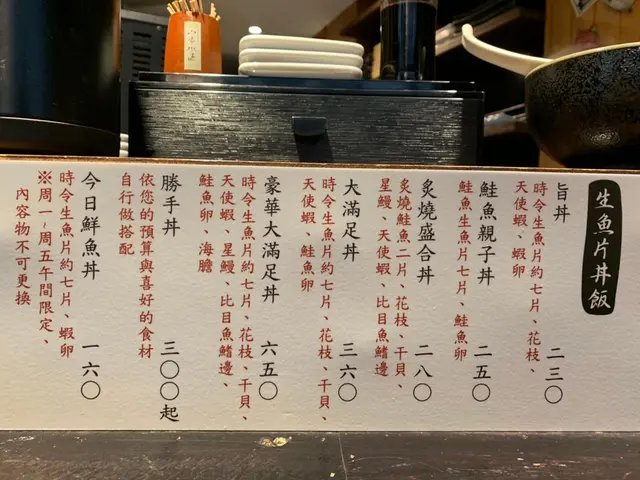 生魚片丼飯
旨丼 二三〇
時令生魚片約七片、花枝、
天使蝦、蝦卵
鮭魚親子丼 二五〇
鮭魚生魚片七片、鮭魚卵
炙燒盛合丼 二八〇
炙燒鮭魚二片、花枝、干貝、
星鰻、天使蝦、比目魚鰭邊
大滿足丼 三六〇
時令生魚片約七片、花枝、干貝、
天使蝦、鮭魚卵
豪華大滿足丼 六五〇
時令生魚片約七片、花枝、干貝、
天使蝦、星鰻、比目魚鰭邊、
鮭魚卵、海膽
勝手丼 三〇〇起
依您的預算與喜好的食材
自行做搭配
今日鮮魚丼 一六〇
時令生魚片約七片、蝦卵
※周一~周五午間限定、
內容物不可更換